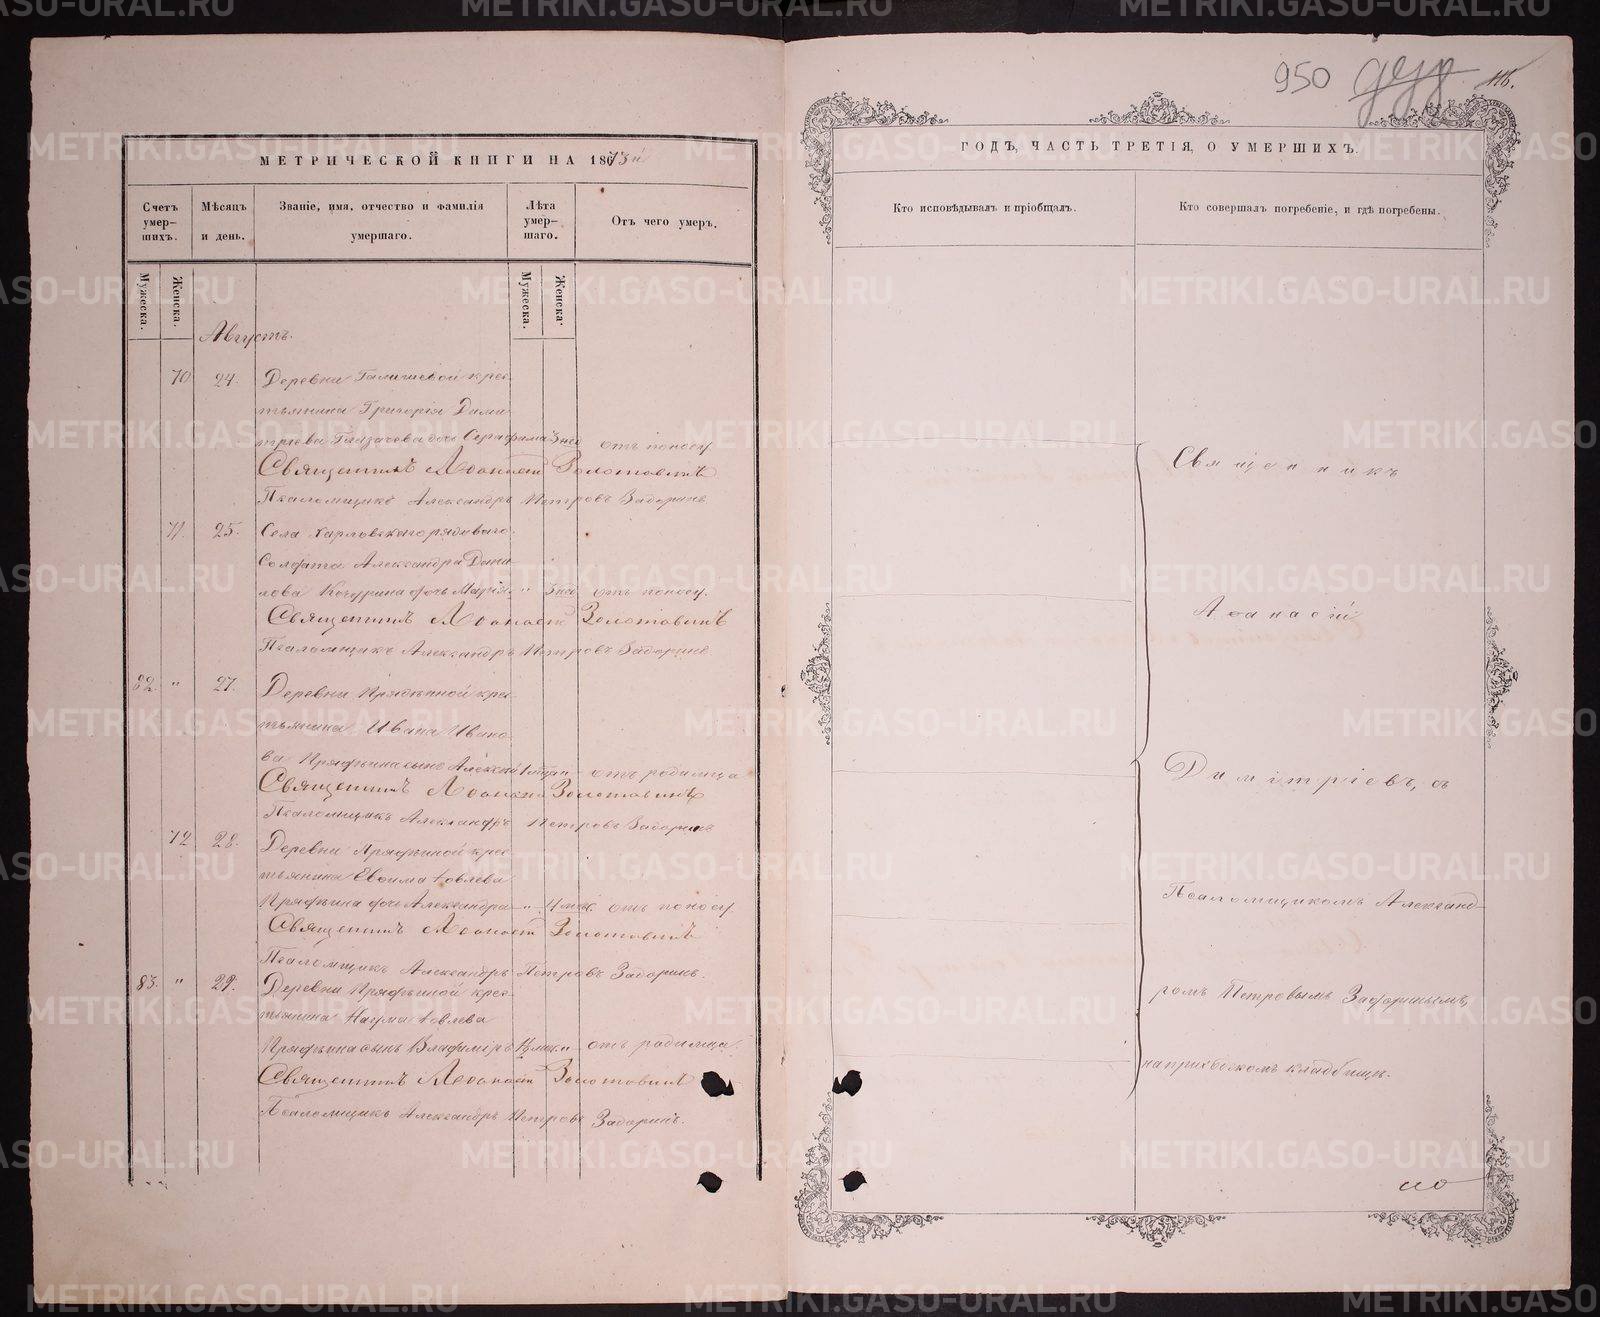 МЕТРИЧЕСКОЙ КНИГИ НА 1873 й
Счетъ умер-шихъ.
Мѣсяцъ и день.
Званіе, имя, отчество и фамилія умершаго.
Лѣта умер-шаго.
Отъ чего умеръ.
Мужеска.
Женска.
Мужеска.
Женска.
Августъ.
70 24. Деревни Галишевой крес-
тьянина Григорія Дими-
тріева дочь Серафима 3 нед отъ поносу
Священникъ Аѳанасій Золотавинъ
Псаломщикъ Александръ Петровъ Задоринъ
71. 25. Села Харловскаго рядоваго
Солдата Александра Дани-
лова Кочурина дочь Марія " 3 нед отъ поносу.
Священникъ Аѳанасій Золотавинъ
Псаломщикъ Александръ Петровъ Задоринъ
82. " 27. Деревни Прядѣиной крес-
тьянина Ивана Ивано-
ва Прядѣина сынъ Алексѣй отъ родимца
Священникъ Аѳанасій Золотавинъ
Псаломщикъ Александръ Петровъ Задоринъ
72 28. Деревни Прядѣиной крес-
тьянина Евѳима Іовлева
Прядѣина дочь Александра " отъ поносу
Священникъ Аѳанасій Золотавинъ
Псаломщикъ Александръ Петровъ Задоринъ.
83. " 29. Деревни Прядѣиной крес-
тьянина Наума Іовлева
Прядѣина сынъ Владиміръ отъ родимца.
Священникъ Аѳанасій Золотавинъ
Псаломщикъ Александръ Петровъ Задоринъ.
950
116.
ГОДЪ, ЧАСТЬ ТРЕТІЯ, О УМЕРШИХЪ.
Кто исповѣдывалъ и пріобщалъ.
Кто совершалъ погребеніе, и гдѣ погребены.
Священникъ
Аѳанасій
Димитріевъ, съ
Псаломщикомъ Александ-
ромъ Петровымъ Задоринымъ,
на приходскомъ кладбищѣ.
METRIKI.GASO-URAL.RU